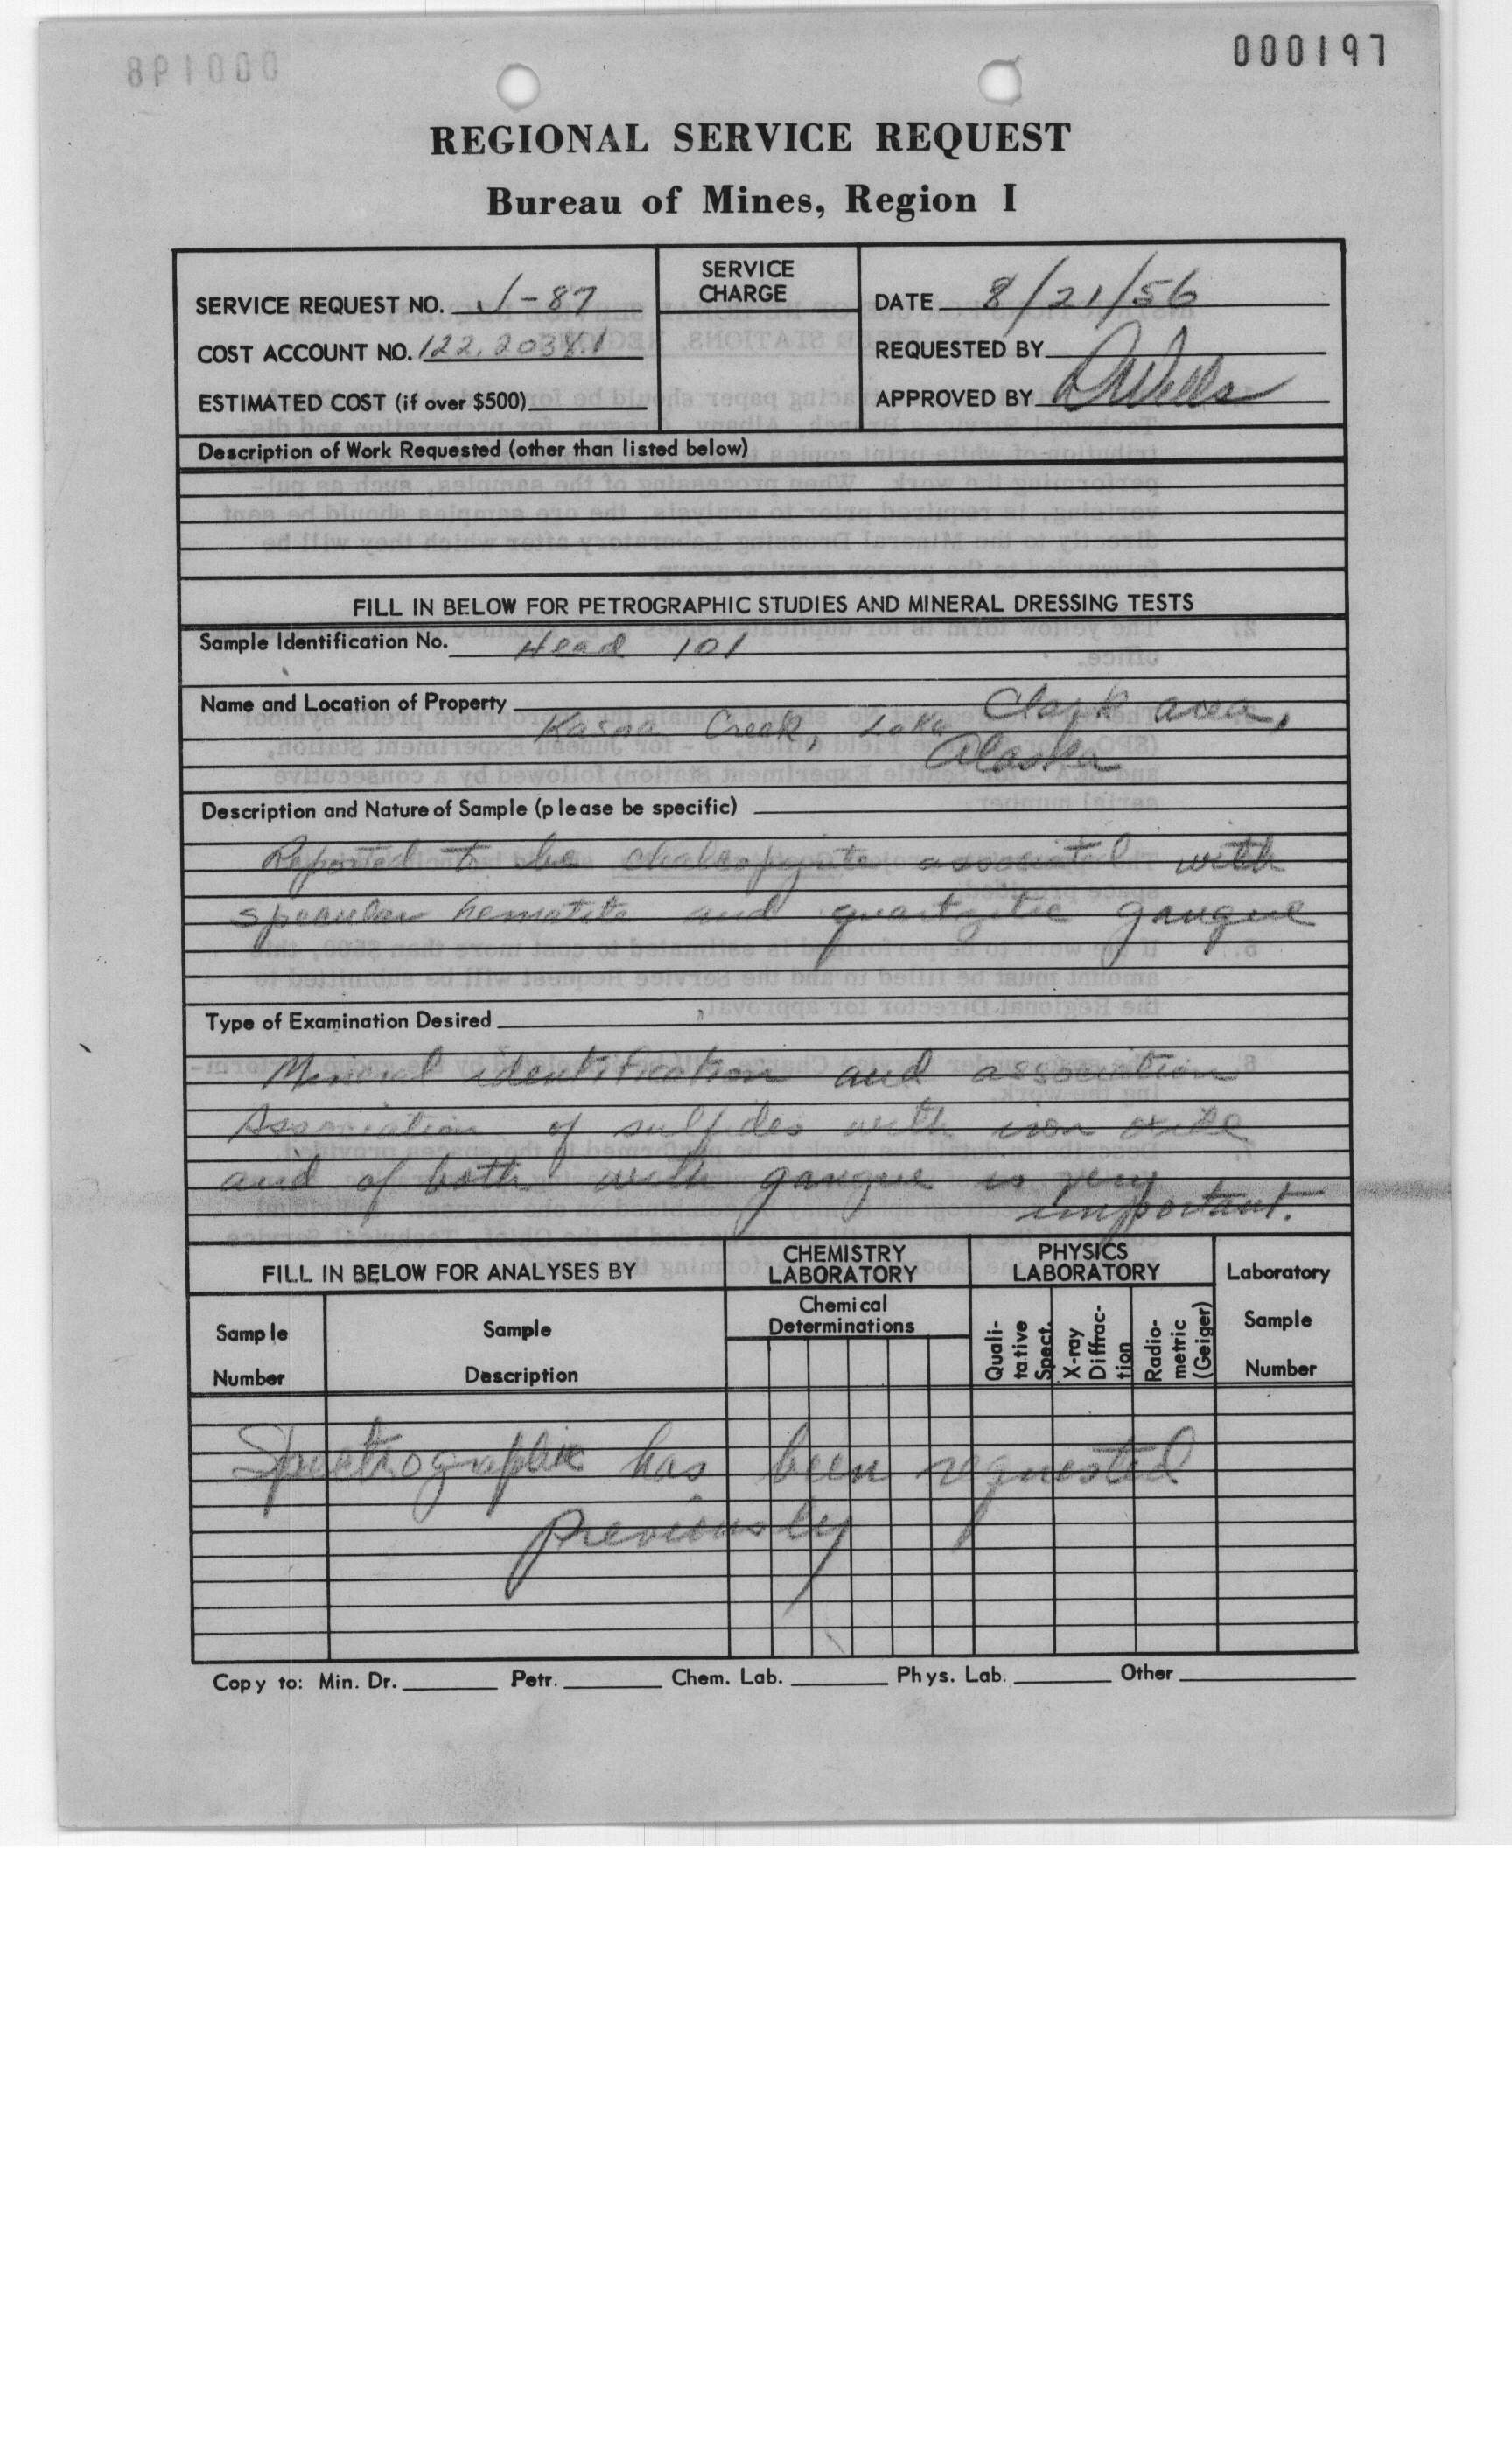 000197
REGIONAL SERVICE REQUEST
Bureau of Mines, Region I
SERVICE REQUEST NO. J-87
COST ACCOUNT NO. 122.2038.1
ESTIMATED COST (if over $500)
SERVICE
CHARGE
DATE 8/21/56
REQUESTED BY
APPROVED BY
Description of Work Requested (other than listed below)
FILL IN BELOW FOR PETROGRAPHIC STUDIES AND MINERAL DRESSING TESTS
Sample Identification No. Head 101
Name and Location of Property
Kasna Creek, Lake Clark area,
Alaska
Description and Nature of Sample (please be specific)
Reported to be chalcopyrite associated with
specular hematite and quartzitic gangue
Type of Examination Desired
Mineral identification and association
Association of sulfides with iron oxide
and of both with gangue is very
important.
FILL IN BELOW FOR ANALYSES BY
CHEMISTRY
LABORATORY
PHYSICS
LABORATORY
Laboratory
Sample
Number
Sample
Number
Sample
Description
Chemical
Determinations
Quali-
tative
Spect.
X-ray
Diffrac-
tion
Radio-
metric
(Geiger)
Spectrographic has been requested
previously
Copy to: Min. Dr. Petr. Chem. Lab. Phys. Lab. Other